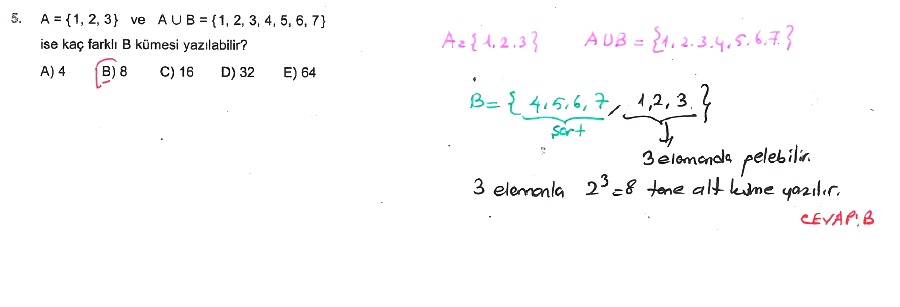 5. A = {1, 2, 3} ve A ∪ B = {1, 2, 3, 4, 5, 6, 7}
ise kaç farklı B kümesi yazılabilir?
A) 4 B) 8 C) 16 D) 32 E) 64
A = {1, 2, 3} A∪B = {1, 2, 3, 4, 5, 6, 7}
B = { 4, 5, 6, 7, 1, 2, 3 }
şart
3 elemanda pelebilir.
3 elemanla 2³ = 8 tane alt küme yazılır.
CEVAP: B